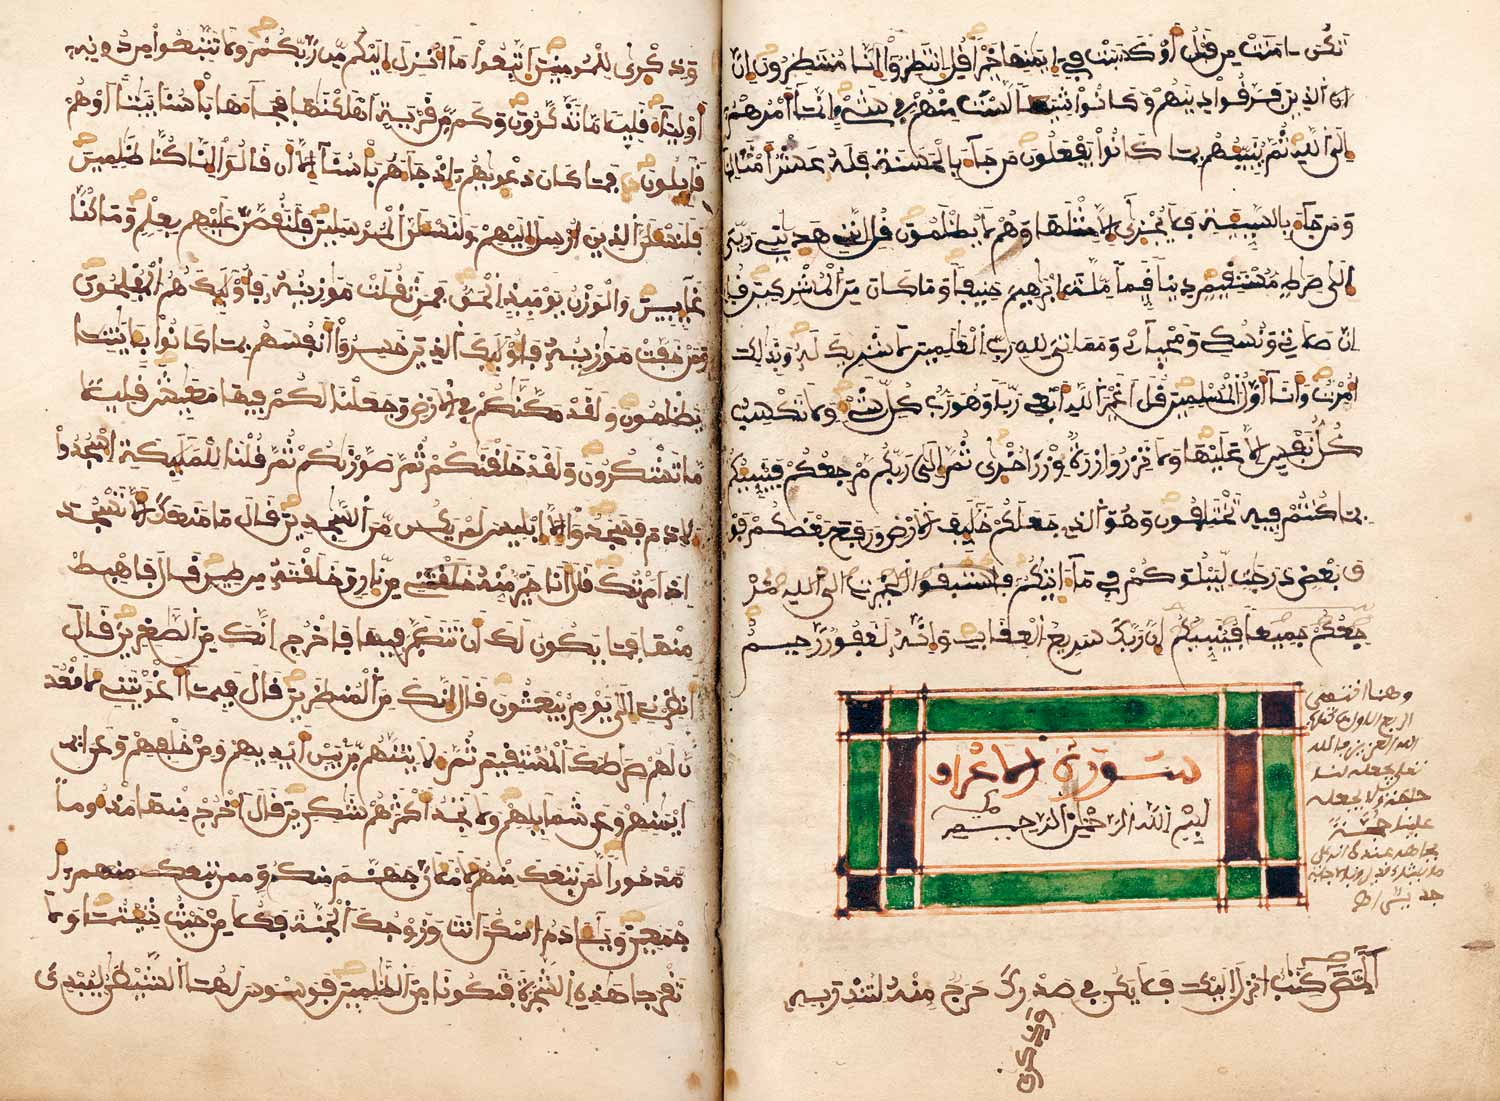 تكن ءامنت من قبل أو كسبت في إيمنها خيرا قل انتظروا إنا منتظرون إن
إن الذين فرقوا دينهم وكانوا شيعا لست منهم في شيء إنما أمرهم
إلى الله ثم ينبئهم بما كانوا يفعلون من جاء بالحسنة فله عشر أمثالها
ومن جاء بالسيئة فلا يجزى إلا مثلها وهم لا يظلمون قل إنني هديني ربي
إلى صرط مستقيم دينا قيما ملة إبرهيم حنيفا وما كان من المشركين قل
إن صلاتي ونسكي ومحياي ومماتي لله رب العلمين لا شريك له وبذلك
أمرت وأنا أول المسلمين قل أغير الله أبغي ربا وهو رب كل شيء ولا تكسب
كل نفس إلا عليها ولا تزر وازرة وزر أخرى ثم إلى ربكم مرجعكم فينبئكم
بما كنتم فيه تختلفون وهو الذي جعلكم خليف الأرض ورفع بعضكم فو
ق بعض درجت ليبلوكم في ما ءاتيكم فاستبقوا الخيرت إلى الله مر
جعكم جميعا فينبئكم إن ربك سريع العقاب وإنه لغفور رحيم
سورة الاعراف
بسم الله الرحمن الرحيم
وهنا انتهى
الربع الاول
المص كتب أنزل إليك فلا يكن في صدرك حرج منه لتنذر به
وذكرى للمومنين اتبعوا ما أنزل إليكم من ربكم ولا تتبعوا من دونه
أولياء قليلا ما تذكرون وكم من قرية أهلكنها فجاءها بأسنا بيتا أو هم
قايلون فما كان دعويهم إذ جاءهم بأسنا إلا أن قالوا إنا كنا ظلمين
فلنسئلن الذين أرسل إليهم ولنسئلن المرسلين فلنقصن عليهم بعلم وما كنا
غايبين والوزن يوميذ الحق فمن ثقلت موزينه فأوليك هم المفلحون
ومن خفت موزينه فأوليك الذين خسروا أنفسهم بما كانوا بايتنا
يظلمون ولقد مكنكم في الأرض وجعلنا لكم فيها معيش قليلا
ما تشكرون ولقد خلقنكم ثم صورنكم ثم قلنا للمليكة اسجدوا
لادم فسجدوا إلا إبليس لم يكن من السجدين قال ما منعك ألا تسجد
إذ أمرتك قال أنا خير منه خلقتني من نار وخلقته من طين قال فاهبط
منها فما يكون لك أن تتكبر فيها فاخرج إنك من الصغرين قال
أنظرني إلى يوم يبعثون قال إنك من المنظرين قال فبما أغويتني لأقعد
ن لهم صرطك المستقيم ثم لأتينهم من بين أيديهم ومن خلفهم وعن
أيمنهم وعن شمايلهم ولا تجد أكثرهم شكرين قال اخرج منها مذءوما
مدحورا لمن تبعك منهم لأملأن جهنم منكم
جمعين ويادم اسكن أنت وزوجك الجنة فكلا من حيث شيتما ولا
تقربا هذه الشجرة فتكونا من الظلمين فوسوس لهما الشيطن ليبدي